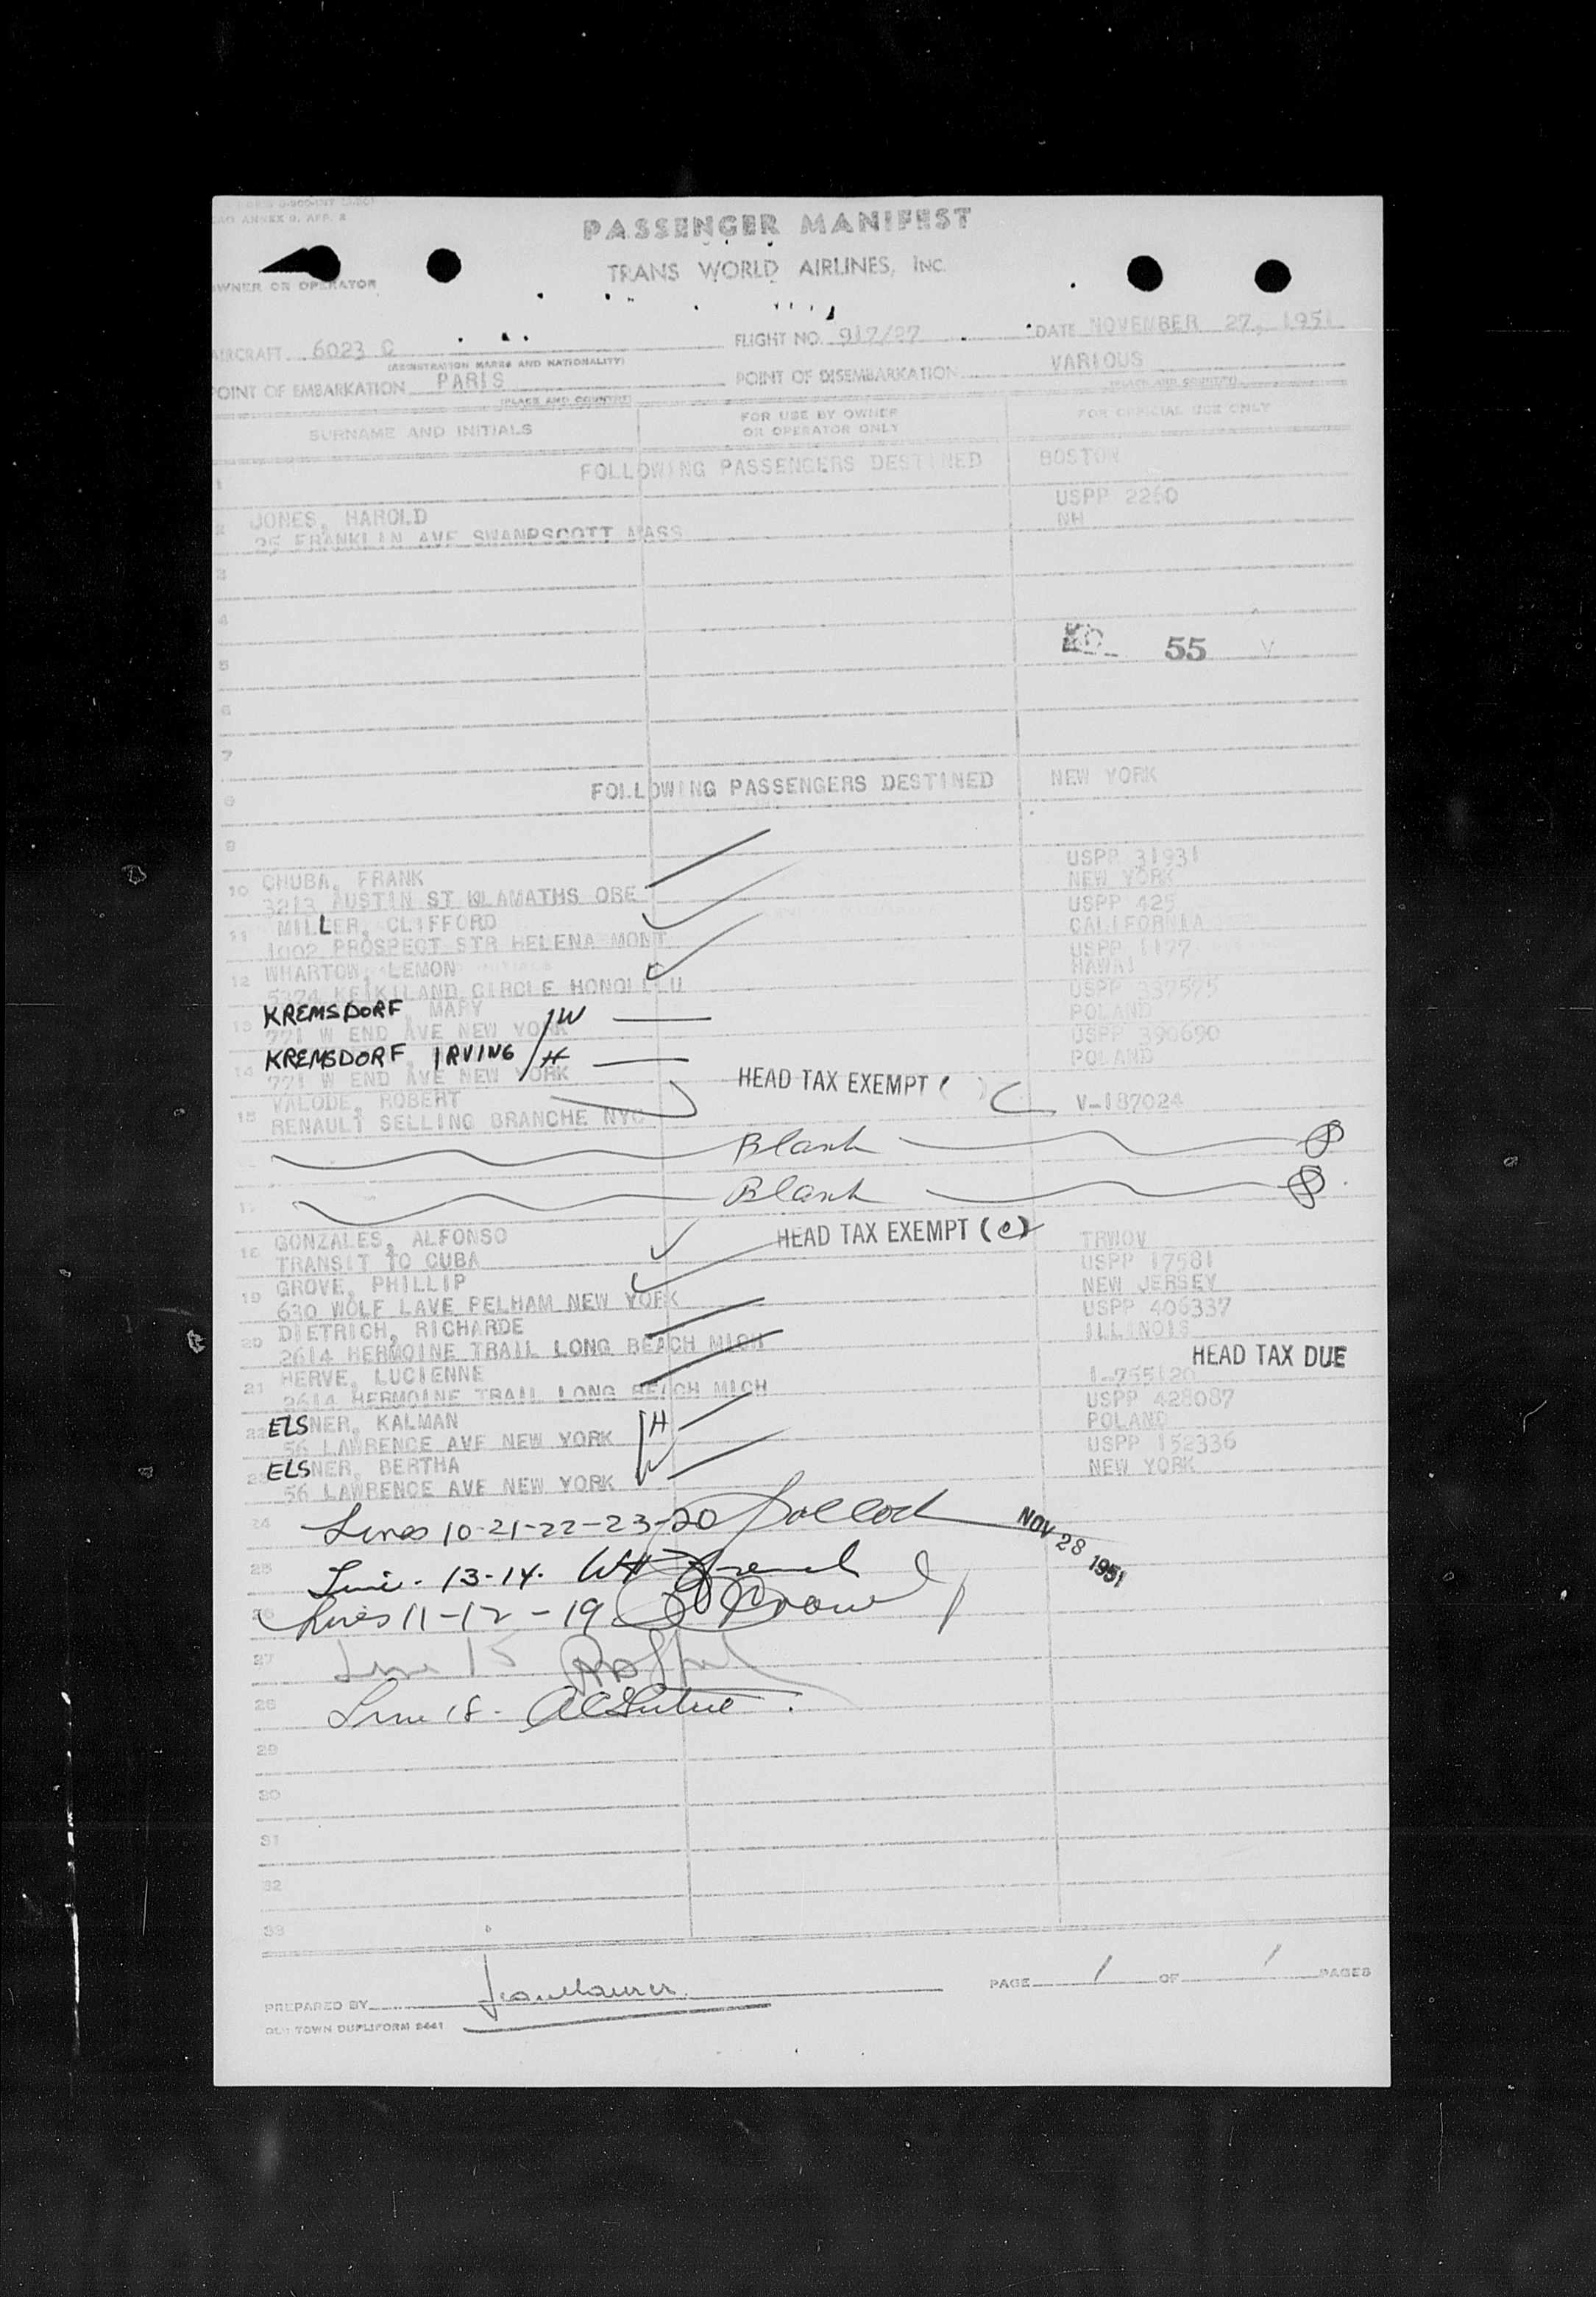 ANNEX 9, APP. 2
PASSENGER MANIFEST
TRANS WORLD AIRLINES, INC.
OWNER OR OPERATOR
AIRCRAFT 6023 C FLIGHT NO. 917/27 DATE NOVEMBER 27, 1951
(REGISTRATION MARKS AND NATIONALITY)
POINT OF EMBARKATION PARIS POINT OF DISEMBARKATION VARIOUS
(PLACE AND COUNTRY) (PLACE AND COUNTRY)
SURNAME AND INITIALS FOR USE BY OWNER OR OPERATOR ONLY FOR OFFICIAL USE ONLY
1 FOLLOWING PASSENGERS DESTINED BOSTON
USPP 2260
2 JONES, HAROLD NH
25 FRANKLIN AVE SWANPSCOTT MASS
3
4
5 55
6
7
8 FOLLOWING PASSENGERS DESTINED NEW YORK
9
USPP 31931
10 CHUBA, FRANK NEW YORK
3213 AUSTIN ST KLAMATHS ORE USPP 425
11 MILLER, CLIFFORD CALIFORNIA
1002 PROSPECT STR HELENA MONT USPP 1177
12 WHARTON, LEMON HAWAI
5274 KEIKILAND CIRCLE HONOLULU USPP 337575
13 KREMSDORF, MARY W POLAND
771 W END AVE NEW YORK USPP 390690
14 KREMSDORF IRVING H POLAND
771 W END AVE NEW YORK HEAD TAX EXEMPT (
15 VALODE, ROBERT V-187024
RENAULT SELLING BRANCHE NYC
Blank
17 Blank
18 GONZALES, ALFONSO HEAD TAX EXEMPT (e) TRWOV
TRANSIT TO CUBA USPP 17581
19 GROVE, PHILLIP NEW JERSEY
630 WOLF LAVE PELHAM NEW YORK USPP 406337
20 DIETRICH, RICHARDE ILLINOIS
2614 HERMOINE TRAIL LONG BEACH MICH HEAD TAX DUE
21 HERVE, LUCIENNE I-755120
2614 HERMOINE TRAIL LONG BEACH MICH USPP 428087
22 ELSNER, KALMAN H POLAND
56 LAWRENCE AVE NEW YORK USPP 152336
23 ELSNER, BERTHA W NEW YORK
56 LAWRENCE AVE NEW YORK
24 Lines 10-21-22-23-20 Pollock NOV 28 1951
25 Line - 13-14.
26 Lines 11-12-19
27 Line 15
28 Line 18 -
29
30
31
32
33
PREPARED BY PAGE 1 OF 1 PAGES
OLD TOWN DUPLIFORM 8441